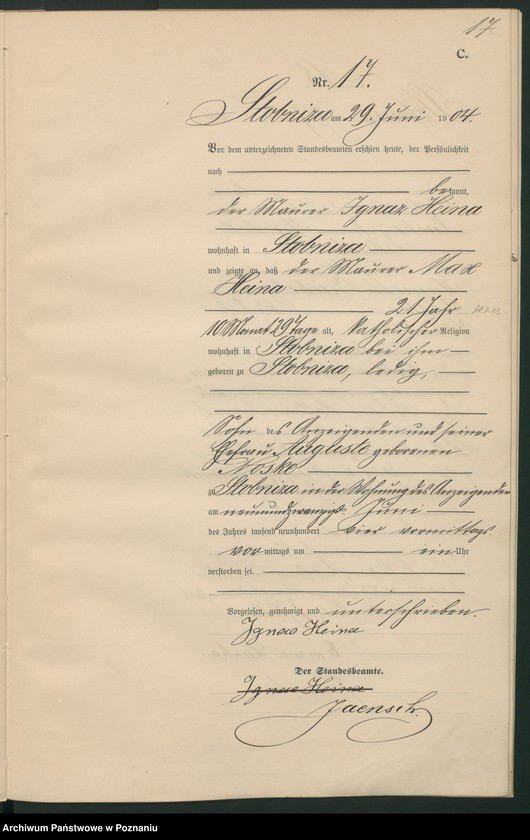 17
C.
Nr. 17.
Stobniza am 29. Juni 1904.
Vor dem unterzeichneten Standesbeamten erschien heute, der Persönlichkeit
nach
bekannt,
der Maurer Ignaz Heina
wohnhaft in Stobniza
und zeigte an, daß der Maurer Max
Heina
21 Jahr
10 Monat 29 Tage alt, katholischer Religion
wohnhaft in Stobniza bei ihm
geboren zu Stobniza, ledig,
Sohn des Anzeigenden und seiner
Ehefrau Auguste geborenen
Noske
zu Stobniza in der Wohnung des Anzeigenden
am neunundzwanzigs Juni
des Jahres tausend neunhundert vier vormittags
vormittags um ein Uhr
verstorben sei.
Vorgelesen, genehmigt und unterschrieben.
Ignac Heina
Der Standesbeamte.
Ignac Heina
Jaensch.
Archiwum Państwowe w Poznaniu